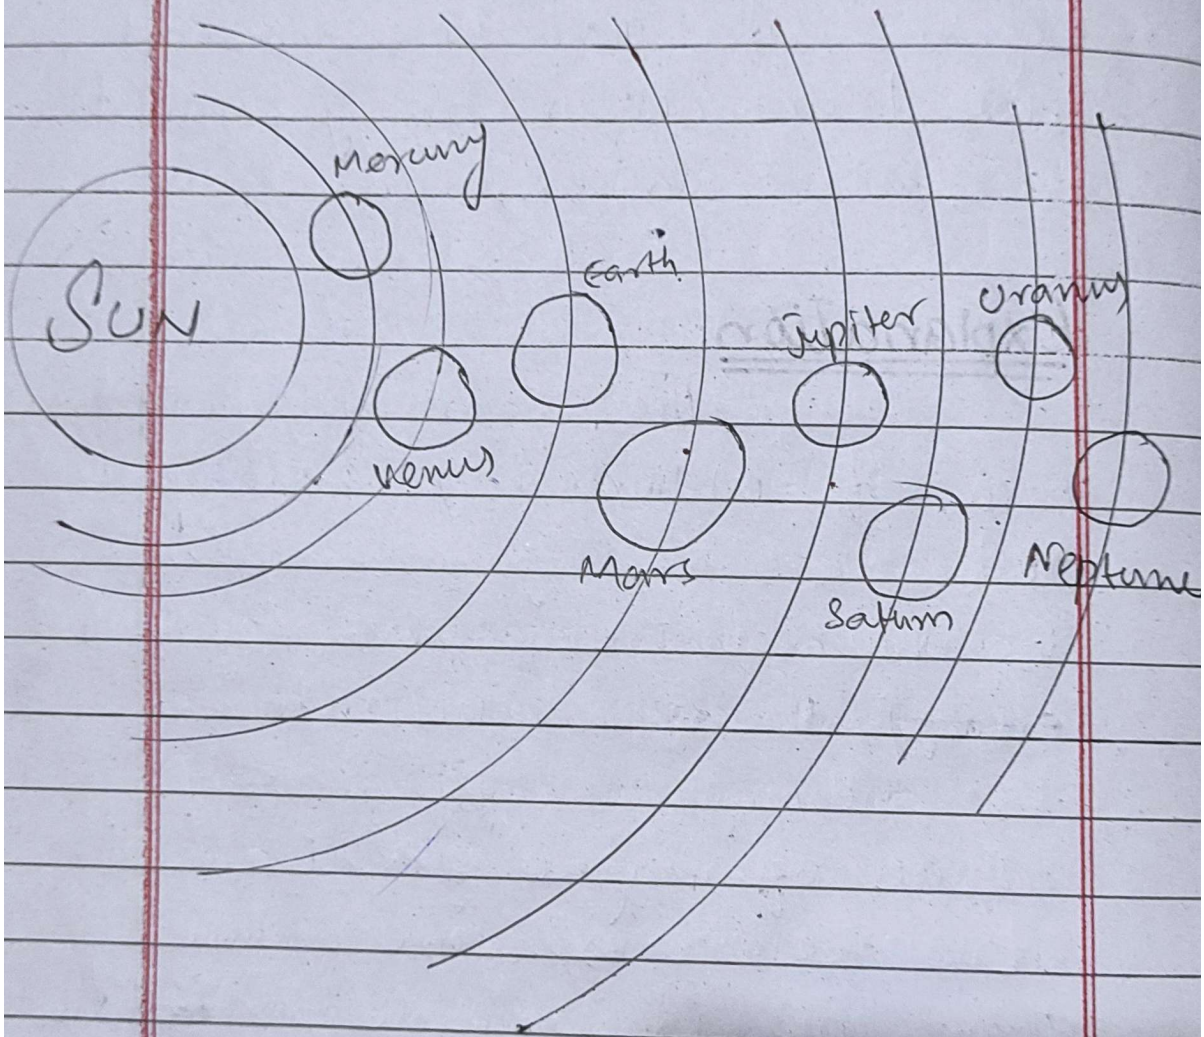 SUN
Mercury
Venus
Earth
Mars
Jupiter
Saturn
Uranus
Neptune